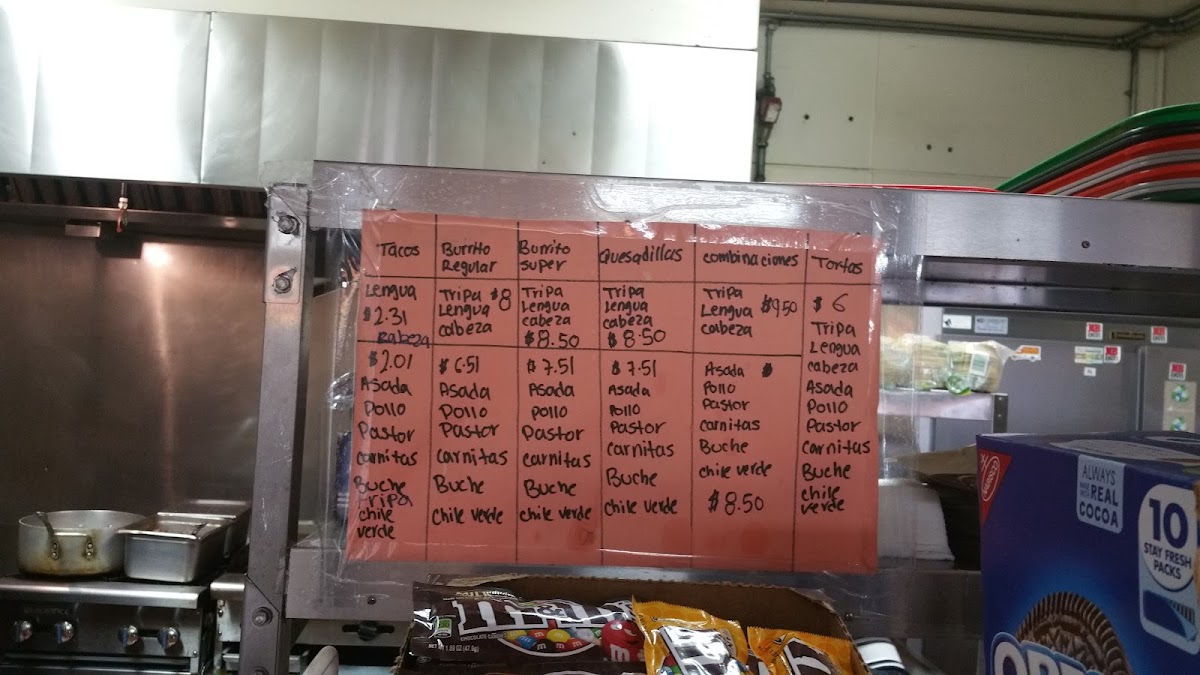 Tacos
Lengua
$2.31
cabeza
$2.01
Asada
Pollo
Pastor
carnitas
Buche
Tripa
chile
verde
Burrito
Regular
Tripa $8
Lengua
cabeza
$6.51
Asada
Pollo
Pastor
carnitas
Buche
chile verde
Burrito
super
Tripa
Lengua
cabeza
$8.50
$7.51
Asada
pollo
Pastor
carnitas
Buche
chile verde
Quesadillas
Tripa
Lengua
cabeza
$8.50
$7.51
Asada
Pollo
Pastor
carnitas
Buche
chile verde
combinaciones
Tripa
Lengua $9.50
cabeza
Asada
Pollo
Pastor
carnitas
Buche
chile verde
$8.50
Tortas
$6
Tripa
Lengua
cabeza
Asada
Pollo
Pastor
carnitas
Buche
chile
verde
NABISCO
ALWAYS
MADE WITH
REAL
COCOA
10
STAY FRESH
PACKS
OREO
m&m's